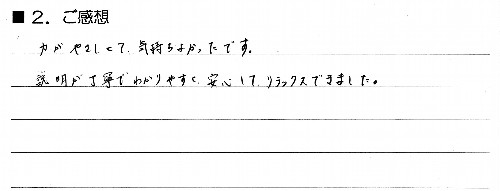 ■ 2. ご感想
力がやさしくて、気持ちよかったです。
説明が丁寧でわかりやすく、安心して、リラックスできました。